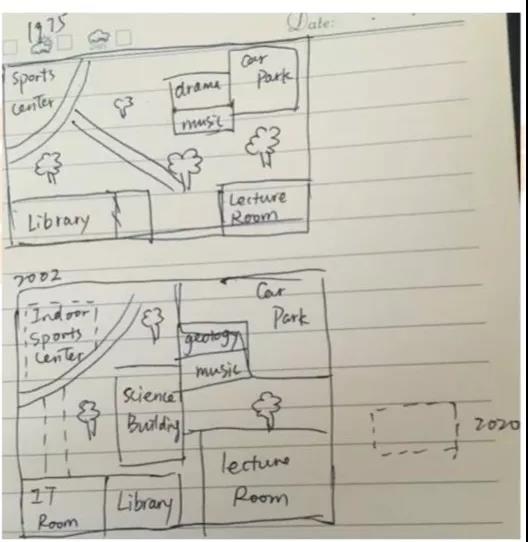 1975
Date:
Sports
center
Car
Park
drama
music
Library
Lecture
Room
2002
Indoor
Sports
Center
Car
Park
geology
music
Science
Building
2020
IT
Room
Library
lecture
Room